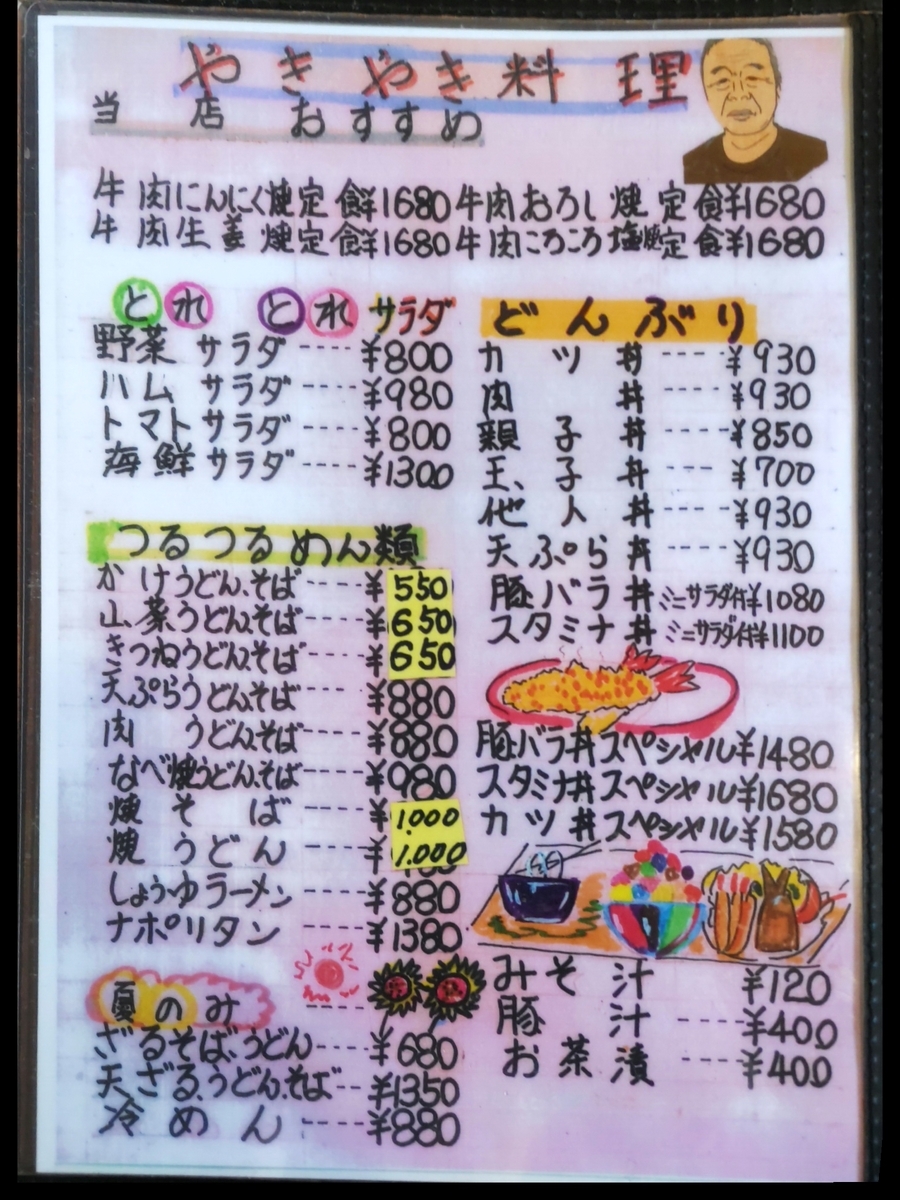 やきやき料理
当店おすすめ
牛肉にんにく焼定食¥1680
牛肉おろし焼定食¥1680
牛肉生姜焼定食¥1680
牛肉ころころ塩焼定食¥1680
とれとれサラダ
野菜サラダ----¥800
ハムサラダ----¥980
トマトサラダ----¥800
海鮮サラダ----¥1300
つるつるめん類
かけうどん、そば----¥550
山菜うどん、そば----¥650
きつねうどん、そば----¥650
天ぷらうどん、そば----¥880
肉うどん、そば----¥880
なべ焼うどん、そば----¥980
焼そば----¥1,000
焼うどん----¥1,000
しょうゆラーメン----¥880
ナポリタン----¥1380
夏のみ
ざるそば、うどん----¥680
天ざる、うどん、そば---¥1350
冷めん----¥880
どんぶり
カツ丼----¥930
肉丼----¥930
親子丼----¥850
玉子丼----¥700
他人丼----¥930
天ぷら丼----¥930
豚バラ丼ミニサラダ付¥1080
スタミナ丼ミニサラダ付¥1100
豚バラ丼スペシャル¥1480
スタミナ丼スペシャル¥1680
カツ丼スペシャル¥1580
みそ汁¥120
豚汁----¥400
お茶漬----¥400